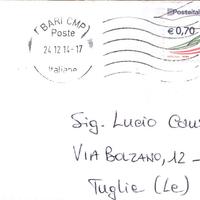 BARI CMP
Posteital
Poste
€ 0,70
24.12.14-17
Italiane
Sig. Lucio
VIA BOLZANO, 12 -
Tuglie (Le)